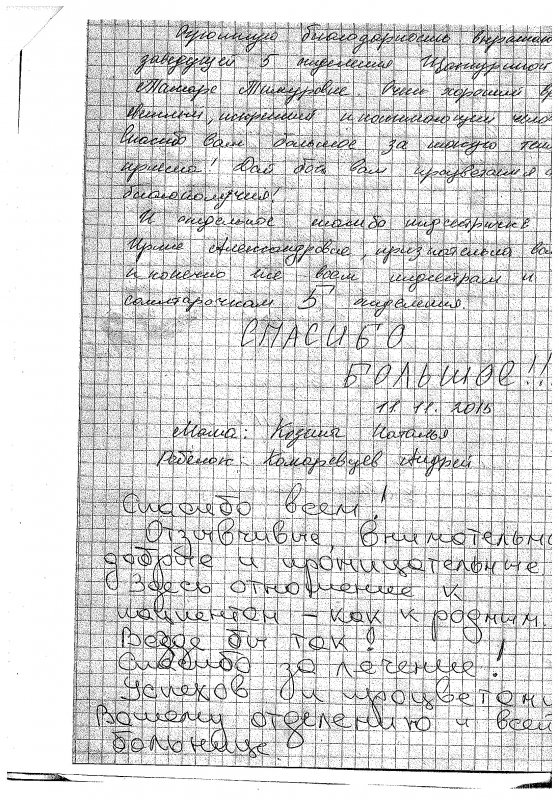 Огромную благодарность выражаю
заведующей 5 отделения
Тамаре Тимуровне. Очень хороший
искренний и понимающий
Спасибо вам большое за
приема! Дай бог вам процветания и
благополучия!
И отдельное спасибо медсестричке
Ирине Александровне, признательна вам
и конечно же всем медсестрам и
санитарочкам 5 отделения.
СПАСИБО
БОЛЬШОЕ!!!
11.11.2015
Мама: Козина Наталья
Ребенок: Комаревцев Андрей
Спасибо всем!
Отзывчивые, внимательны
добрые и проницательные
Здесь отношение к
пациентам – как к родным.
Везде бы так!
Спасибо за лечение!
Успехов и процветани
Вашему отделению и всей
больнице.